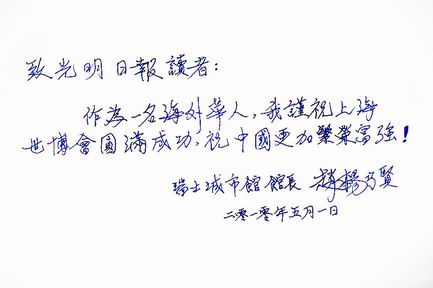 致光明日報讀者：
作為一名海外華人，我謹祝上海
世博會圓滿成功，祝中國更加繁榮富強！
瑞士城市館館長 趙楊乃賢
二零一零年五月一日